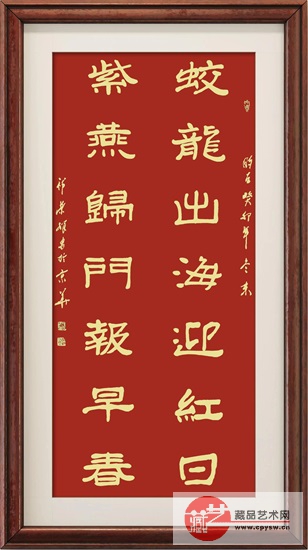 蛟龍出海迎紅日
紫燕歸門報早春
時在癸卯年冬末
書於京華
藏品艺术网
www.cpysw.cn